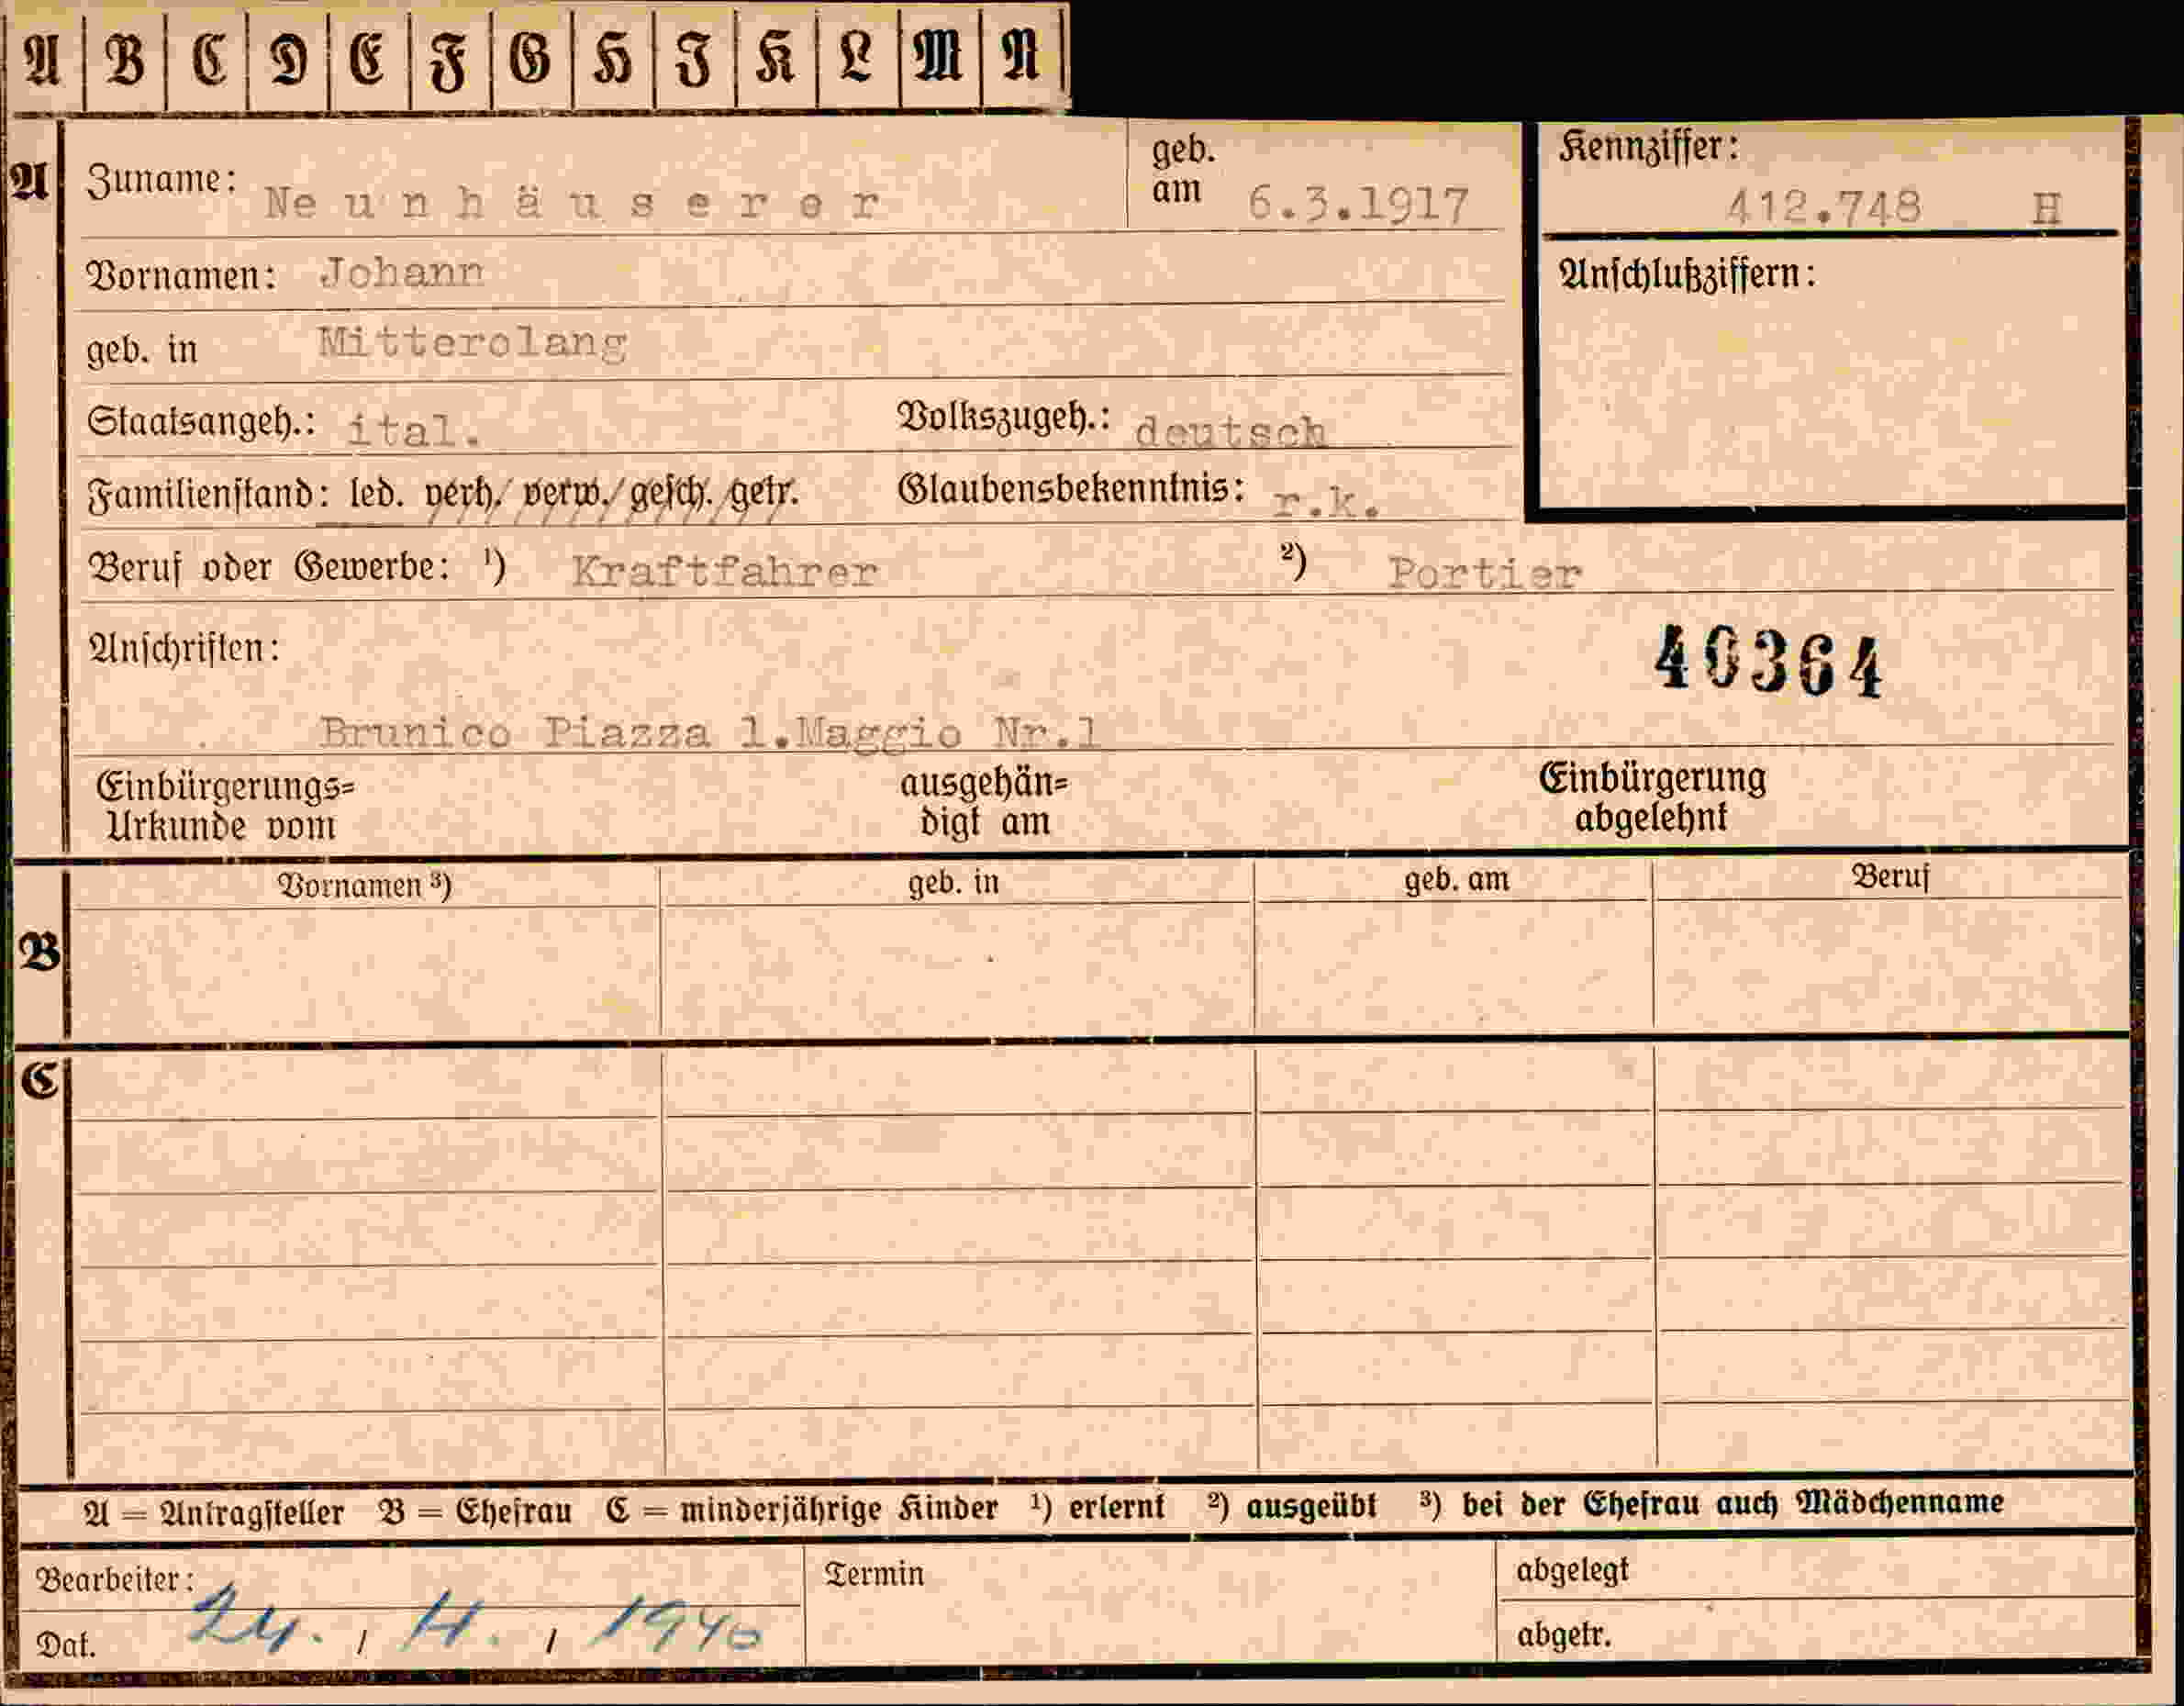 A B C D E F G H J K L M N
A Zuname: Neunhäuserer geb. am 6.3.1917
Kennziffer: 412.748 H
Vornamen: Johann
Anschlußziffern:
geb. in Mitterolang
Staatsangeh.: ital. Volkszugeh.: deutsch
Familienstand: led. verh. verw. gesch. getr. Glaubensbekenntnis: r.k.
Beruf oder Gewerbe: ¹) Kraftfahrer ²) Portier
Anschriften: 40364
Brunico Piazza 1.Maggio Nr.1
Einbürgerungs= ausgehän= Einbürgerung
Urkunde vom digt am abgelehnt
B Vornamen ³) geb. in geb. am Beruf
C
A = Antragsteller B = Ehefrau C = minderjährige Kinder ¹) erlernt ²) ausgeübt ³) bei der Ehefrau auch Mädchenname
Bearbeiter: Termin abgelegt
Dat. 24. 4. 1940 abgetr.